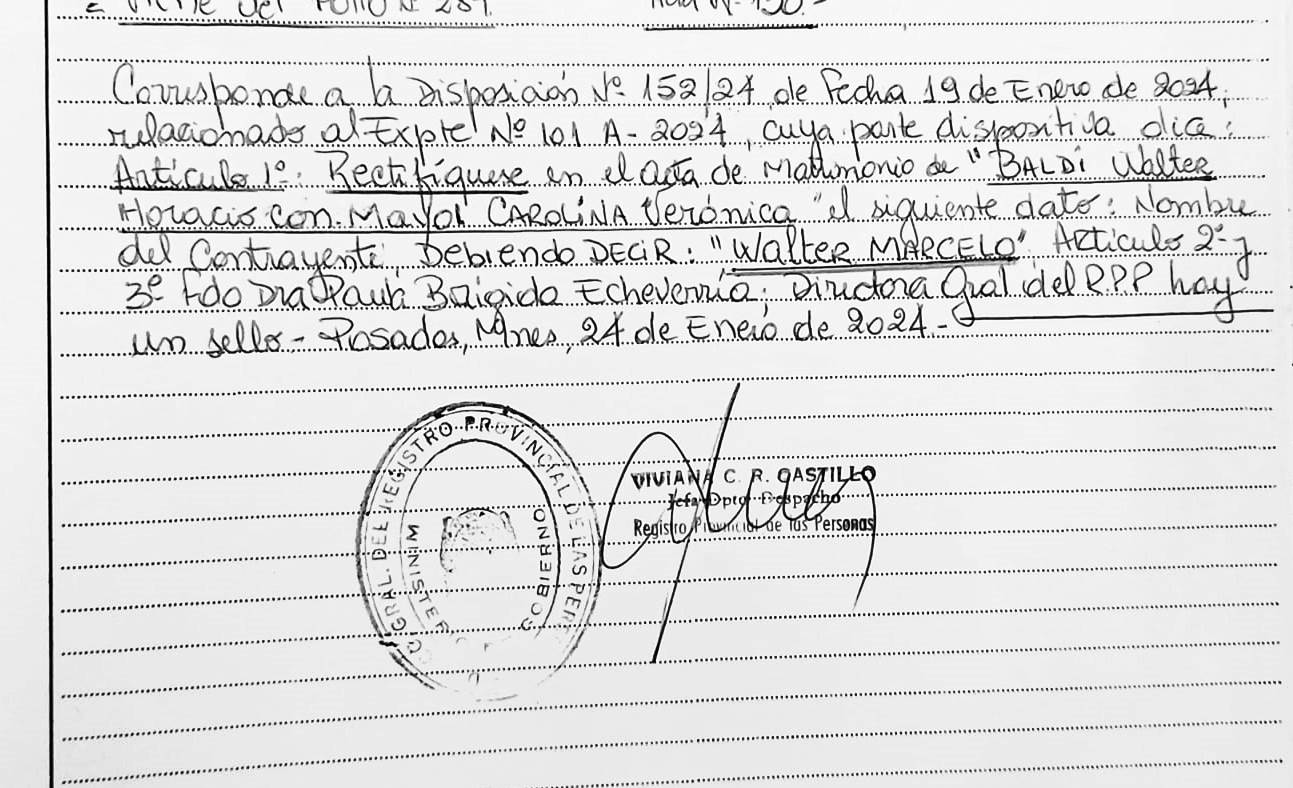 Viene del Folio Nº 289. Acta Nº 190.-
Corresponde a la Disposición Nº 152/24 de fecha 19 de Enero de 2024,
relacionado al Expte Nº 101 A-2024, cuya parte dispositiva dice:
Artículo 1º: Rectifíquese en el acta de Matrimonio de "BALDI Walter
Horacio con MAYOL CAROLINA Verónica" el siguiente dato: Nombre
del Contrayente, Debiendo DECIR: "Walter MARCELO" Artículo 2º y
3º Fdo Dra Paula Brigida Echeverría; Directora Gral del RPP hay
un sello- Posadas, Mnes, 24 de Enero de 2024.-
GRAL. DEL REGISTRO PROVINCIAL DE LAS PER
MINISTERIO GOBIERNO
VIVIANA C. R. CASTILLO
Jefa Dpto Despacho
Registro Provincial de las Personas